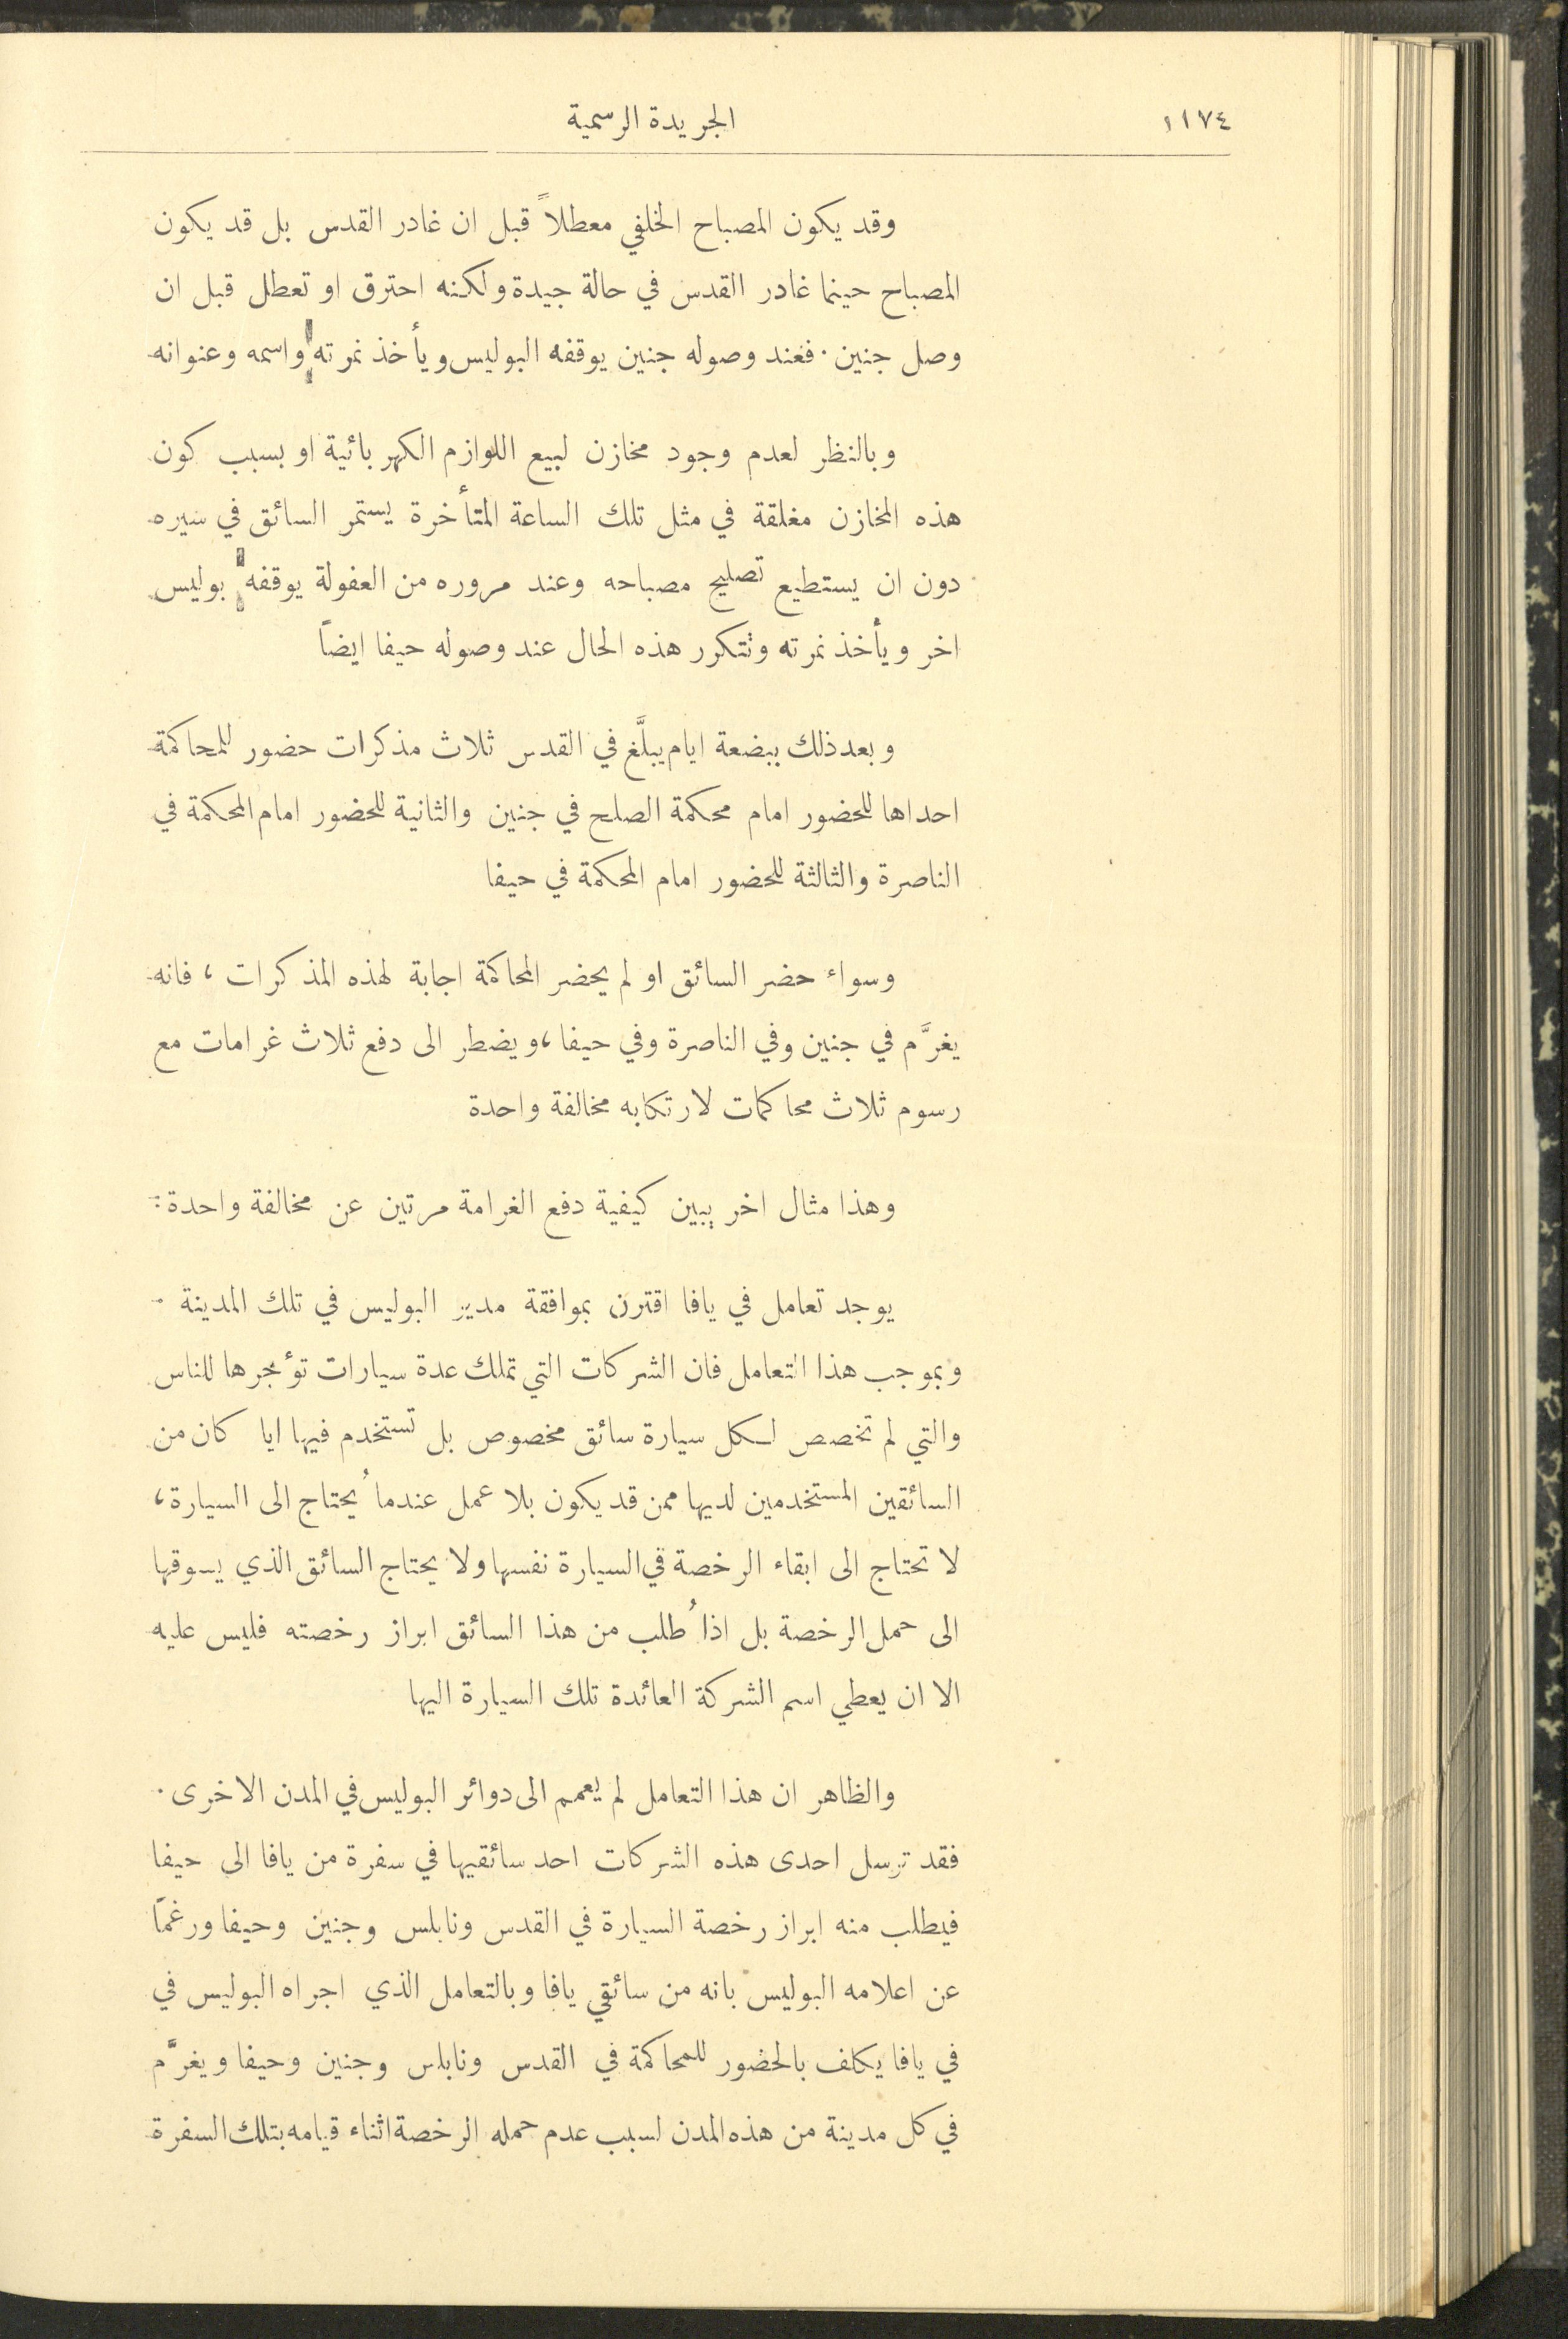 ١١٧٤
الجريدة الرسمية
وقد يكون المصباح الخلفي معطلاً قبل ان غادر القدس بل قد يكون
المصباح حينما غادر القدس في حالة جيدة ولكنه احترق او تعطل قبل ان
وصل جنين. فعند وصوله جنين يوقفه البوليس ويأخذ نمرته واسمه وعنوانه
وبالنظر لعدم وجود مخازن لبيع اللوازم الكهربائية او بسبب كون
هذه المخازن مغلقة في مثل تلك الساعة المتأخرة يستمر السائق في سيره
دون ان يستطيع تصليح مصباحه وعند مروره من العفولة يوقفه بوليس
اخر ويأخذ نمرته وتتكرر هذه الحال عند وصوله حيفا ايضاً
وبعد ذلك ببضعة ايام يبلَّغ في القدس ثلاث مذكرات حضور للمحاكمة
احداها للحضور امام محكمة الصلح في جنين والثانية للحضور امام المحكمة في
الناصرة والثالثة للحضور امام المحكمة في حيفا
وسواء حضر السائق او لم يحضر المحاكمة اجابة لهذه المذكرات، فانه
يغرَّم في جنين وفي الناصرة وفي حيفا، ويضطر الى دفع ثلاث غرامات مع
رسوم ثلاث محاكمات لارتكابه مخالفة واحدة
وهذا مثال اخر يبين كيفية دفع الغرامة مرتين عن مخالفة واحدة:
يوجد تعامل في يافا اقترن بموافقة مدير البوليس في تلك المدينة.
وبموجب هذا التعامل فان الشركات التي تملك عدة سيارات تؤجرها للناس
والتي لم تخصص لكل سيارة سائق مخصوص بل تستخدم فيها ايا كان من
السائقين المستخدمين لديها ممن قد يكون بلا عمل عندما يُحتاج الى السيارة،
لا تحتاج الى ابقاء الرخصة في السيارة نفسها ولا يحتاج السائق الذي يسوقها
الى حمل الرخصة بل اذا طُلب من هذا السائق ابراز رخصته فليس عليه
الا ان يعطي اسم الشركة العائدة تلك السيارة اليها
والظاهر ان هذا التعامل لم يعمم الى دوائر البوليس في المدن الاخرى.
فقد ترسل احدى هذه الشركات احد سائقيها في سفرة من يافا الى حيفا
فيطلب منه ابراز رخصة السيارة في القدس ونابلس وجنين وحيفا ورغماً
عن اعلامه البوليس بانه من سائقي يافا وبالتعامل الذي اجراه البوليس في
في يافا يكلف بالحضور للمحاكمة في القدس ونابلس وجنين وحيفا ويغرَّم
في كل مدينة من هذه المدن لسبب عدم حمله الرخصة اثناء قيامه بتلك السفرة